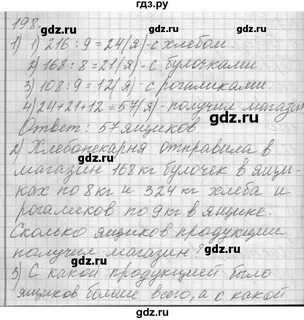 gdz.ru
198.
1) 1) 216 : 9 = 24 (я) - с хлебом.
2) 168 : 8 = 21 (я) - с булочками.
3) 108 : 9 = 12 (я) - с рогаликами.
4) 24+21+12 = 57 (я) - получил магазин
Ответ: 57 ящиков.
2) Хлебопекарня отправила в
магазин 168 кг булочек в ящи-
ках по 8 кг и 324 кг хлеба и
рогаликов по 9 кг в ящике.
Сколько ящиков продукции
получил магазин?
3) С какой продукцией было
ящиков больше всего, а с какой
gdz.ru